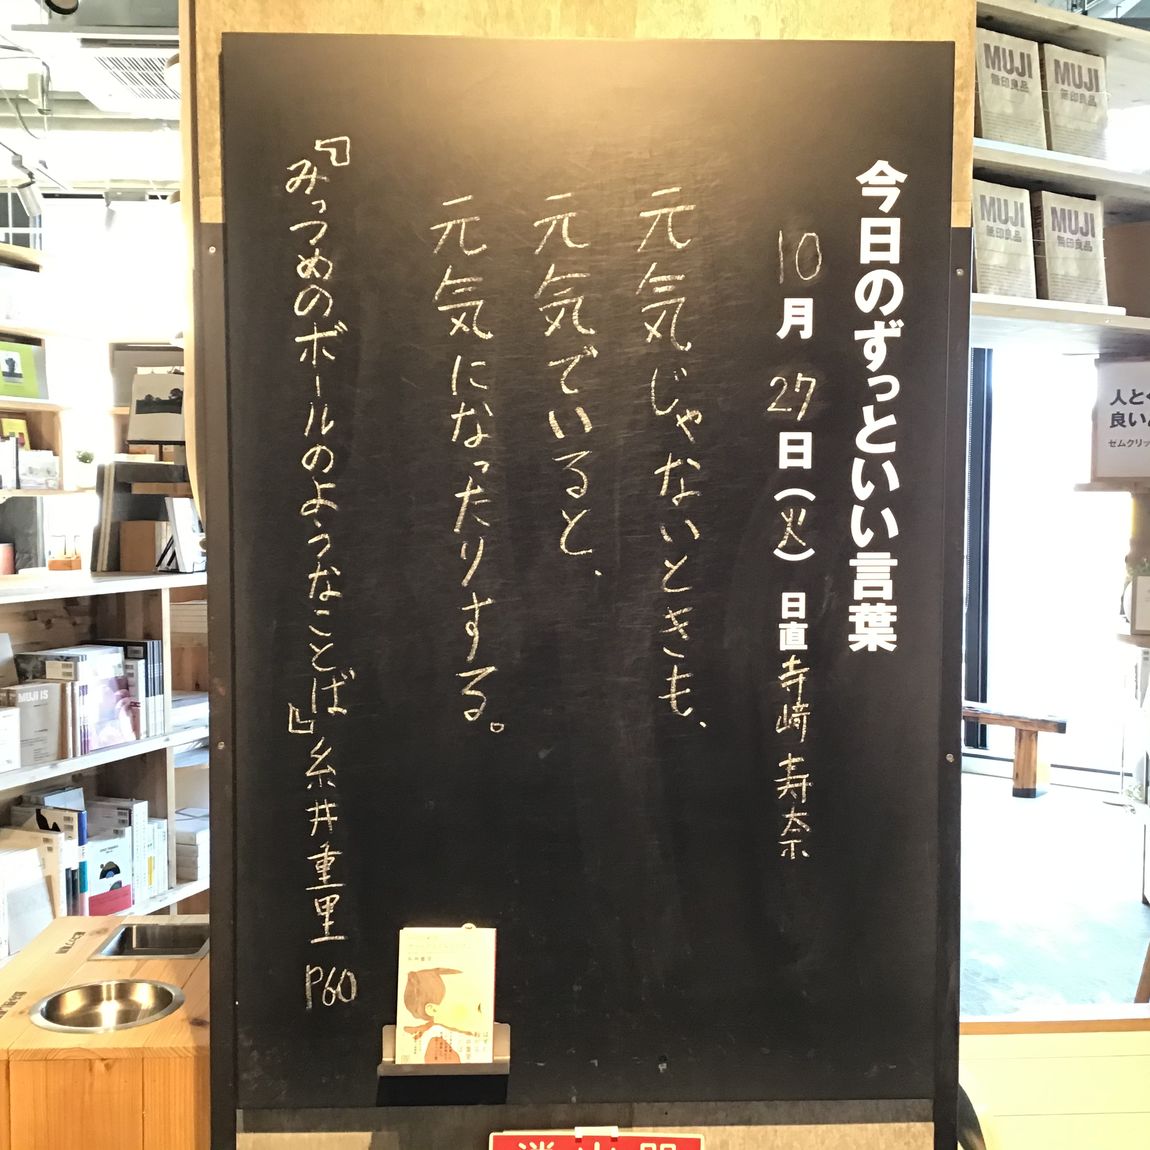 今日のずっといい言葉
10月27日(火) 日直 寺崎 寿奈
元気じゃないときも、
元気でいると、
元気になったりする。
『みっつめのボールのようなことば』糸井重里 P60
MUJI
無印良品
MUJI
無印良品
MUJI
無印良品
MUJI
無印良品
人とく
良い
ゼムクリッ
MUJI IS